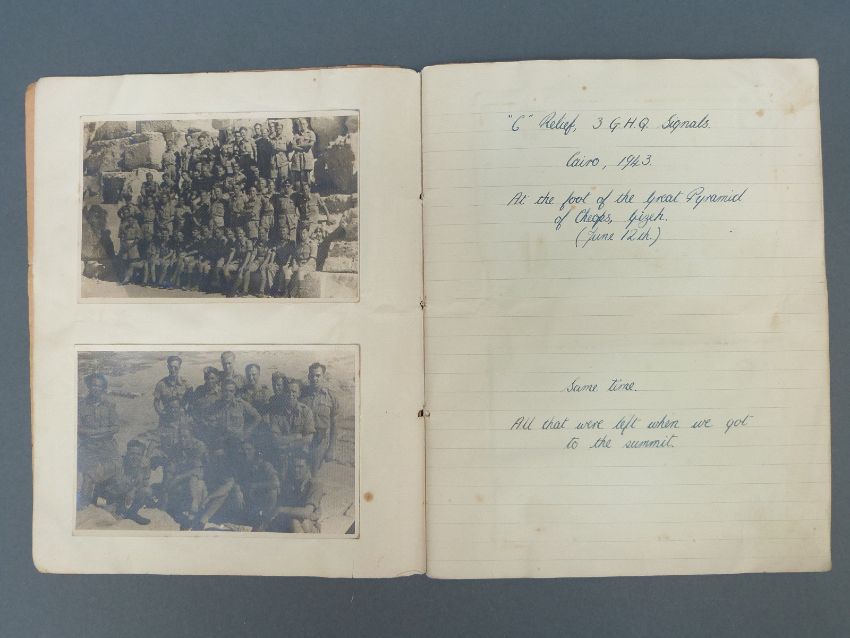 "C" Relief, 3 G.H.Q. Signals.
Cairo, 1943.
At the foot of the Great Pyramid
of Cheops, Gizeh.
(June 12th.)
Same time.
All that were left when we got
to the summit.